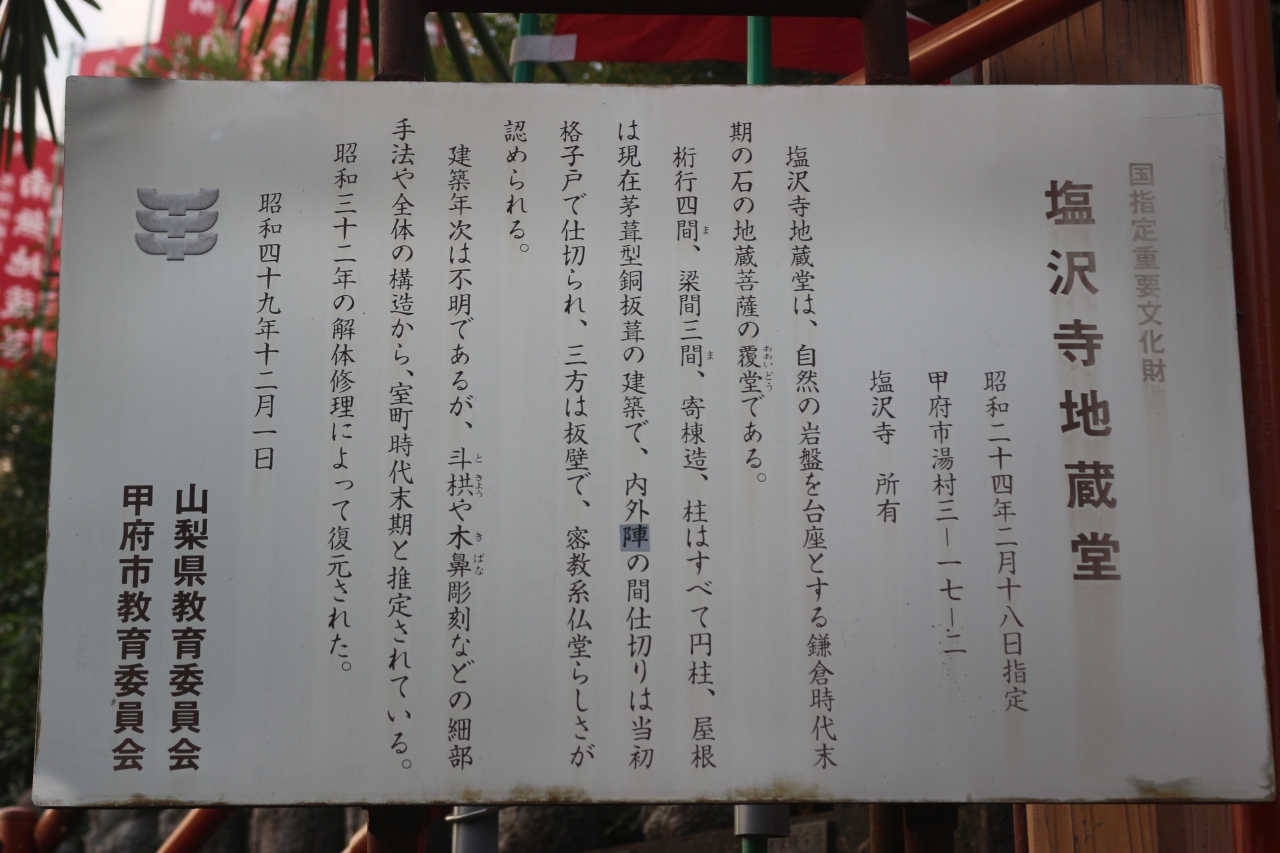 国指定重要文化財
塩沢寺地蔵堂
昭和二十四年二月十八日指定
甲府市湯村三―一七―二
塩沢寺 所有
塩沢寺地蔵堂は、自然の岩盤を台座とする鎌倉時代末
期の石の地蔵菩薩の覆堂である。
おおいどう
桁行四間、梁間三間、寄棟造、柱はすべて円柱、屋根
ま
ま
は現在茅葺型銅板葺の建築で、内外陣の間仕切りは当初
格子戸で仕切られ、三方は板壁で、密教系仏堂らしさが
認められる。
建築年次は不明であるが、斗栱や木鼻彫刻などの細部
ときょう
きばな
手法や全体の構造から、室町時代末期と推定されている。
昭和三十二年の解体修理によって復元された。
昭和四十九年十二月一日
山梨県教育委員会
甲府市教育委員会
南無地蔵